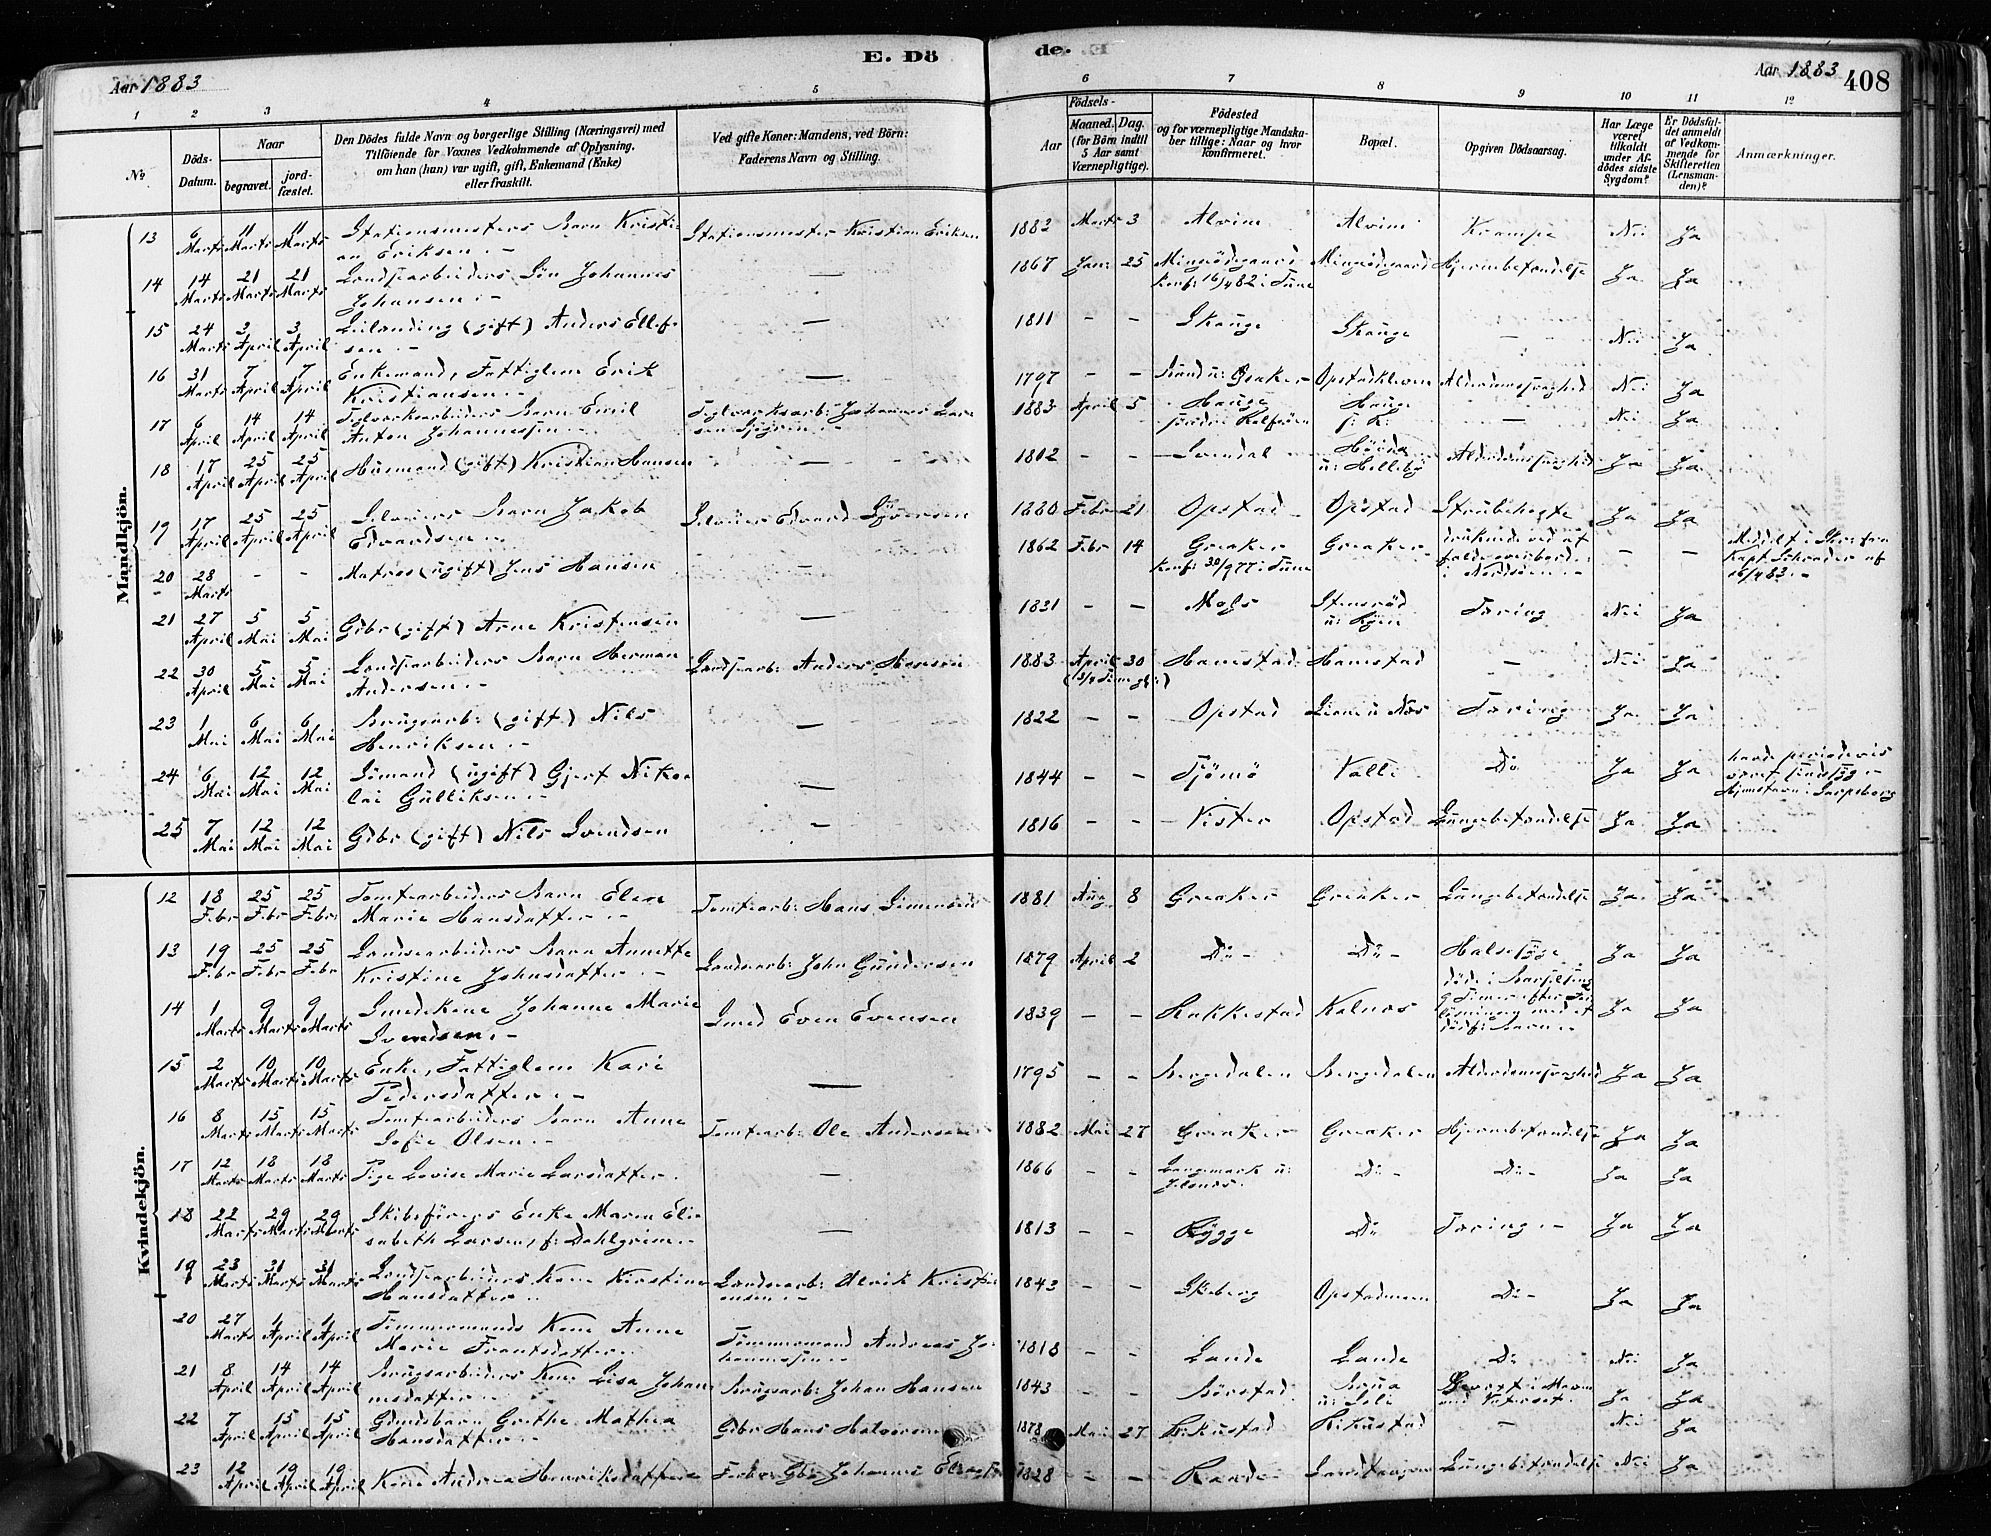 E. Dö
de.
Aar 1883
Aar 1883
408
1 2 3 4 5 6 7 8 9 10 11 12
No
Döds-Datum.
Naar
begravet.
jordfæstet.
Den Dödes fulde Navn og borgerlige Stilling (Næringsvei) med
Tilföiende for Voxnes Vedkommende af Oplysning,
om han (hun) var ugift, gift, Enkemand (Enke)
eller fraskilt.
Ved gifte Koner: Mandens, ved Börn:
Faderens Navn og Stilling.
Födsels-
Aar
Maaned. Dag.
(for Börn indtil
5 Aar samt
Værnepligtige).
Födested
og for værnepligtige Mandskaber tillige: Naar og hvor
konfirmeret.
Bopæl.
Opgiven Dödsaarsag.
Har Læge
været
tilkaldt
under Afdödes sidste
Sygdom?
Er Dödsfaldet anmeldt
af Vedkommende for
Skifteretten
(Lensmanden)?
Anmærkninger.
Mandkjön.
13 6 Marts 11 Marts 11 Marts Stationsmesters Barn Kristian Eriksen Stationsmester Kristian Eriksen 1883 Marts 3 Alvim Alvim Krampe Nei Ja
14 14 Marts 21 Marts 21 Marts Landsarbeiders Sön Johannes Johansen 1867 Jan: 25 Mingeödegaard Konf: 16/4 82 i Tune Mingeödegaard Hjernebetændelse Ja Ja
15 24 Marts 3 April 3 April Leilænding (gift) Anders Ellefsen 1811 – – Skauge Skauge – Nei Ja
16 31 Marts 7 April 7 April Enkemand, Fattiglem Erik Kristiansen 1797 – – Sund u: Greaker Opstadkleven Alderdomssvaghed Nei Ja
17 6 April 14 April 14 April Teglverksarbeiders Barn Emil Anton Johannessen Teglverksarb: Johannes Larsen 1883 April 5 Hauge Hauge – Nei Ja
18 17 April 25 April 25 April Husmand (gift) Kristian Hansen – 1812 – – Svendal u: Helleby Alderdomssvaghed Ja Ja
19 17 April 25 April 25 April Selveiers Barn Jakob Edvardsen Selveier Edvard Syversen 1880 Febr 21 Opstad Opstad Strubehoste Ja Ja
20 28 Marts – – Matros (ugift) Jens Hansen – 1862 Febr 14 Greaker Konf: 30/9 77 i Tune Greaker druknede ved at falde overbord i Nordsöen – – Meddelt i Skr: fra Kapt: Schrader af 16/4 83
21 27 April 5 Mai 5 Mai Gdbr (gift) Arne Kristensen – 1831 – – Moss Stensröd Tæring Nei Ja
22 30 April 5 Mai 5 Mai Landsarbeiders Barn Herman Andersen Landsarb: Anders Hansen 1883 April 30 Hanestad Hanestad – Nei Ja
23 1 Mai 6 Mai 6 Mai Brugsarb: (gift) Nils Henriksen – 1822 – – Opstad Lien u: Næs Tæring Ja Ja
24 6 Mai 12 Mai 12 Mai Sömand (ugift) Gjert Nikolai Gulliksen – 1844 – – Tjömö Valle Do Ja Ja havde periodevis været sindssyg Hjemstavn: Sarpsborg
25 7 Mai 12 Mai 12 Mai Gdbr (gift) Nils Svendsen – 1816 – – Vister Opstad Lungebetændelse Ja Ja
Kvindekjön.
12 18 Febr 25 Febr 25 Febr Tomtearbeiders Barn Elen Marie Hansdatter Tomtearb: Hans Simensen 1881 Aug 8 Greaker Greaker Lungebetændelse Ja Ja
13 19 Febr 25 Febr 25 Febr Landsarbeiders Barn Annette Kristine Johnsdatter Landsarb: John Gundersen 1879 April 2 Do Do Halssyge Ja Ja
14 1 Marts 9 Marts 9 Marts Smedekone Johanne Marie Svendsen Smed Even Evensen 1839 – – Rakkestad Kalnæs döde i Barselseng 9 Timer efter Forlösning med et dödf: Barn Ja Ja
15 2 Marts 10 Marts 10 Marts Enke, Fattiglem Kari Pedersdatter – 1795 – – Bergedalen Bergedalen Alderdomssvaghed Ja Ja
16 8 Marts 15 Marts 15 Marts Tomtearbeiders Barn Anne Sofie Olsen Tomtearb: Ole Andersen 1882 Mai 27 Greaker Greaker Hjernebetændelse Ja Ja
17 12 Marts 18 Marts 18 Marts Pige Lovise Marie Larsdatter – 1866 – – Langemark u: Do Do Ja Ja
18 22 Marts 29 Marts 29 Marts Skibsförers Enke Maren Elisabeth Larsen, f: Dahlgren – 1813 – – Rygge Do Tæring Ja Ja
19 23 Marts 31 Marts 31 Marts Landsarbeiders Kone Kirstine Hansdatter Landsarb: Ulrik Kristiansen 1843 – – Skjeberg Opstadmoen Do Ja Ja
20 27 Marts 1 April 1 April Tömmermands Kone Anne Marie Frantsdatter Tömmermand Andreas Johannessen 1818 – – Lande Lande Do Nei Ja
21 8 April 14 April 14 April Brugsarbeiders Kone Lisa Johannesdatter Brugsarb: Johan Hansen 1843 – – Börstad Ja Ja
22 7 April 15 April 15 April Gdmdsbarn Grethe Mathea Hansdatter Gdbr Hans Halvorsen 1878 Mai 27 Bikustad Bikustad – Nei Ja
23 12 April 19 April 19 April Kone Andrea Henriksdatter Johannes 1828 – – Raade Lungebetændelse Nei Ja